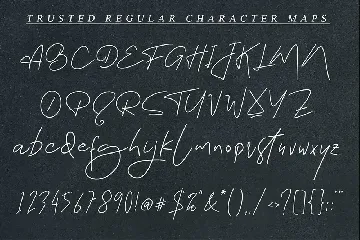 TRUSTED REGULAR CHARACTER MAPS
ABCDEFGHIJKLMN
OPQRSTUVWXYZ
abcdefghijklmnopqrstuvwxyz
1234567890!@#$%&*(),./<>?[]{}:;